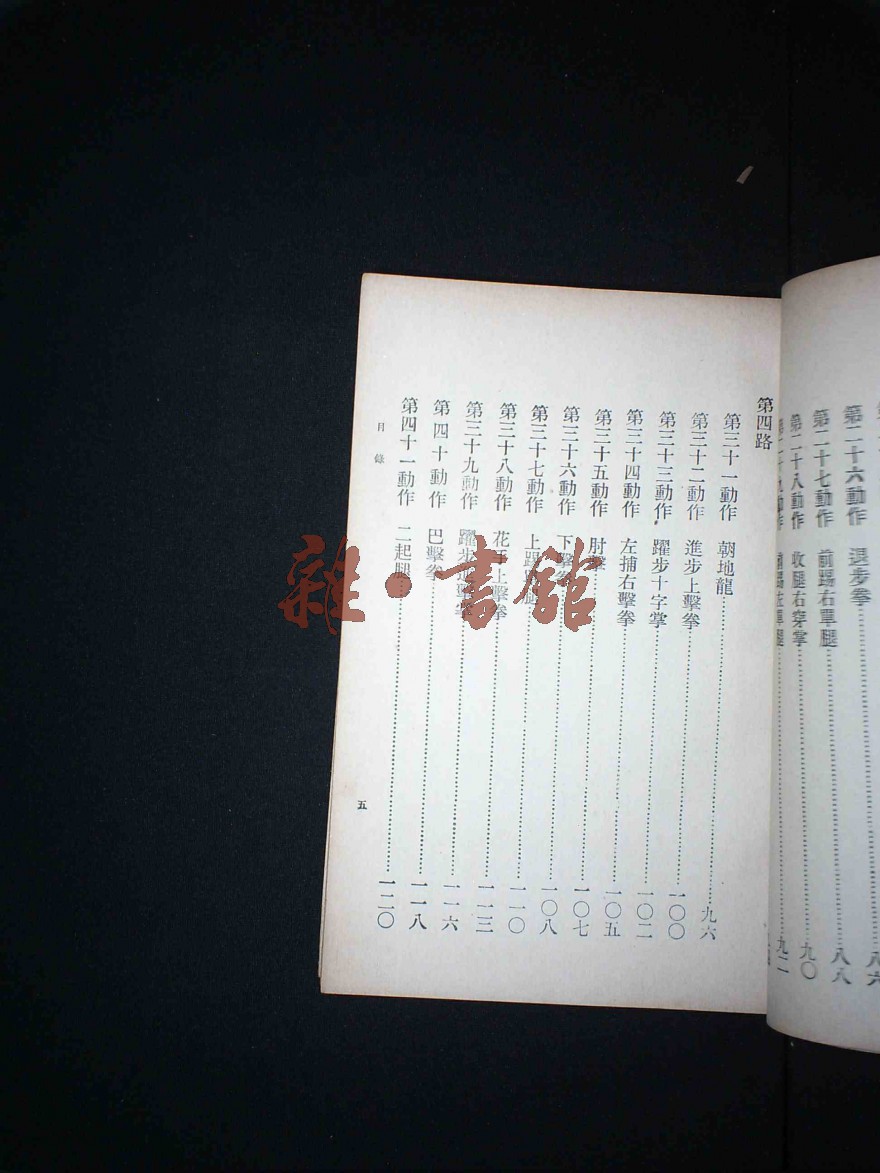 第二十六動作 退步拳 八六
第二十七動作 前踢右單腿 八八
第二十八動作 收腿右穿掌 九〇
九二
第四路
第三十一動作 朝地龍 九六
第三十二動作 進步上擊拳 一〇〇
第三十三動作 躍步十字掌 一〇二
第三十四動作 左捕右擊拳 一〇五
第三十五動作 肘擊 一〇七
第三十六動作 下擊 一〇八
第三十七動作 上踢 腿 一一〇
第三十八動作 花手上擊拳 一一三
第三十九動作 躍步 擊拳 一一六
第四十動作 巴擊拳 一一八
第四十一動作 二起腿 一二〇
目錄
五
雜·書館